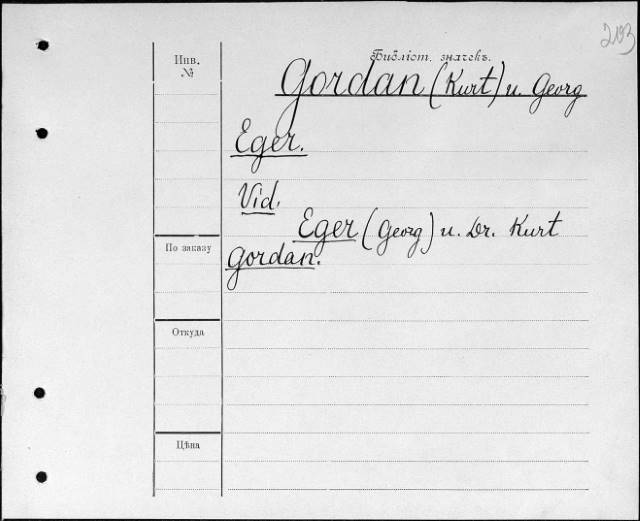 203
Инв.
№
Библіот. значекъ.
Gordan (Kurt) u. Georg
Eger.
Vid.
Eger (Georg) u. Dr. Kurt
Gordan.
По заказу
Откуда
Цѣна